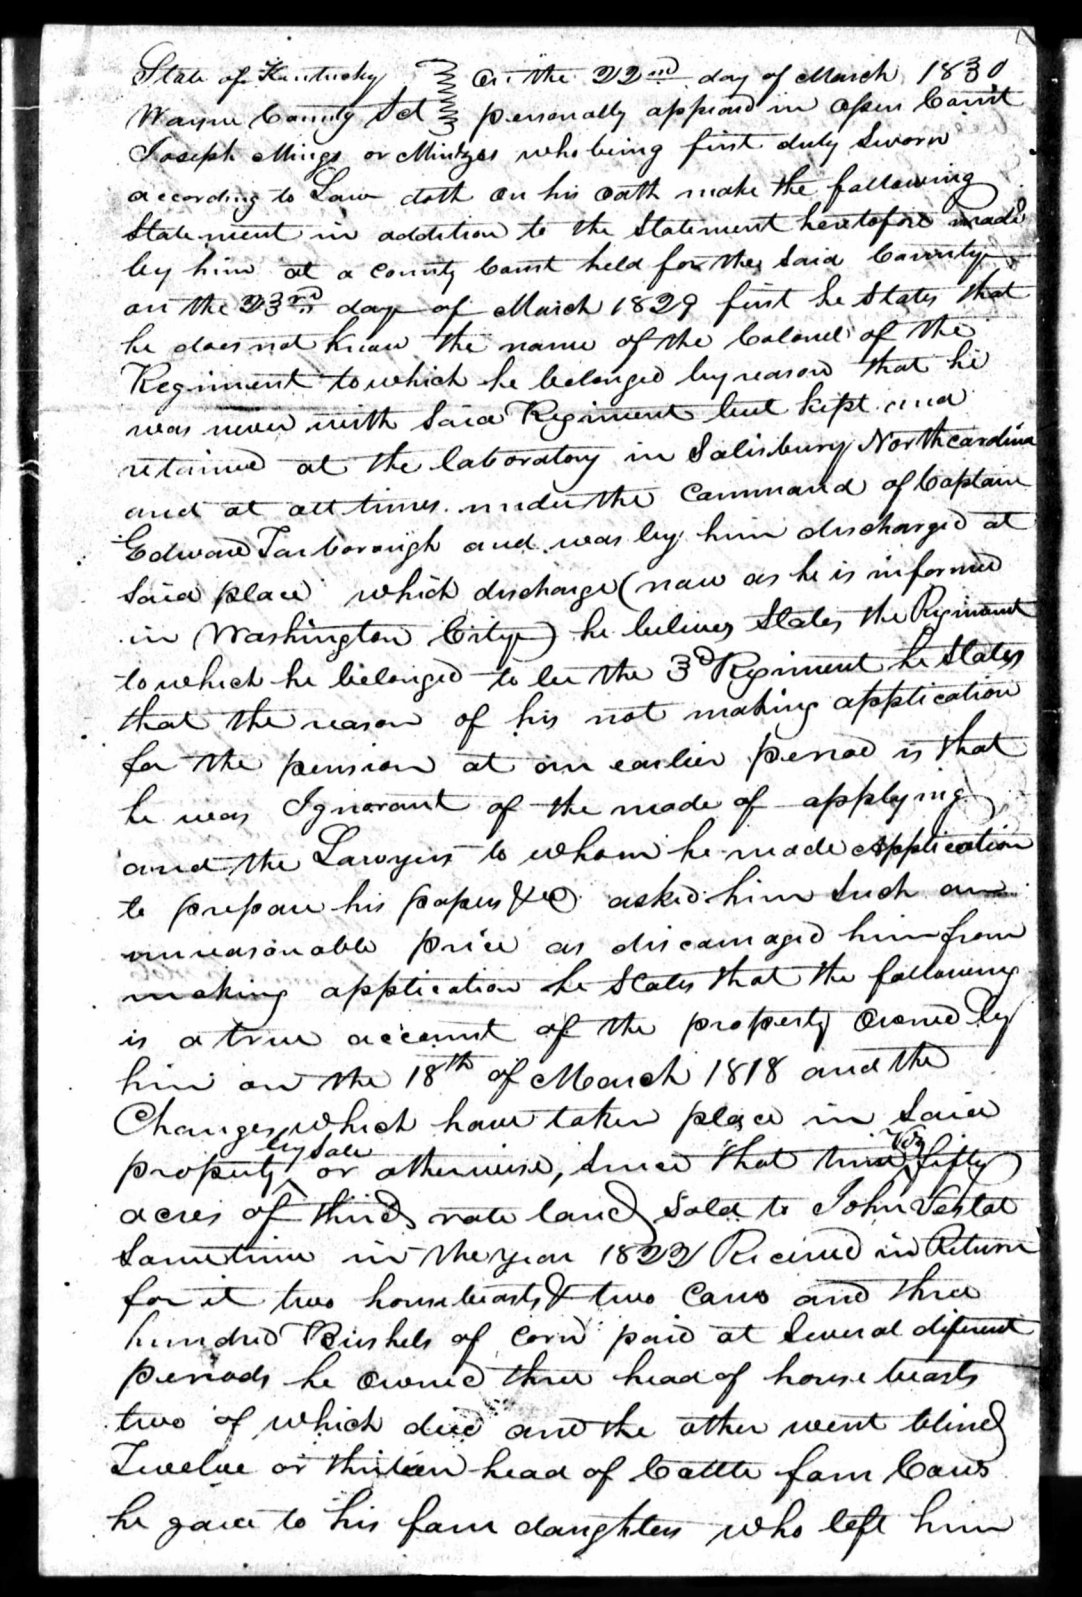 State of Kentucky } On the 22nd day of March 1830
Wayne County Sct } personally appeard in Open Court
Joseph Mings or Mintzes who being first duly Sworn
according to Law doth on his oath make the following
Statement in addition to the Statement heretofore made
by him at a county Court held for the said County
on the 23rd day of March 1829 first he States that
he does not know the name of the Colonel of the
Regiment to which he belonged by reason that he
was never with said Regiment but kept and
retained at the laboratory in Salisbury Northcarolina
and at all times under the command of Captain
Edward Yarborough and was by him discharged at
said place which discharge (now as he is informed
in Washington City) he believes States the Regiment
to which he belonged to be the 3d Regiment he States
that the reason of his not making application
for the pension at an earlier period is that
he was Ignorant of the mode of applying
and the Lawyers to whom he made application
to prepare his papers &c asked him such an
unreasonable price as discouraged him from
making application he States that the following
is a true account of the property Owned by
him on the 18th of March 1818 and the
Changes which have taken place in said
property by Sale or otherwise, since that time Viz fifty
acres of third rate land sold to John
Sometime in the year 1822 Received in Return
for it two horse beasts & two Cows and three
hundred Bushels of corn paid at several diferent
periods he owned three head of horse beasts
two of which died and the other went blind
Twelve or thirteen head of Cattle four Cows
he gave to his four daughters who left him